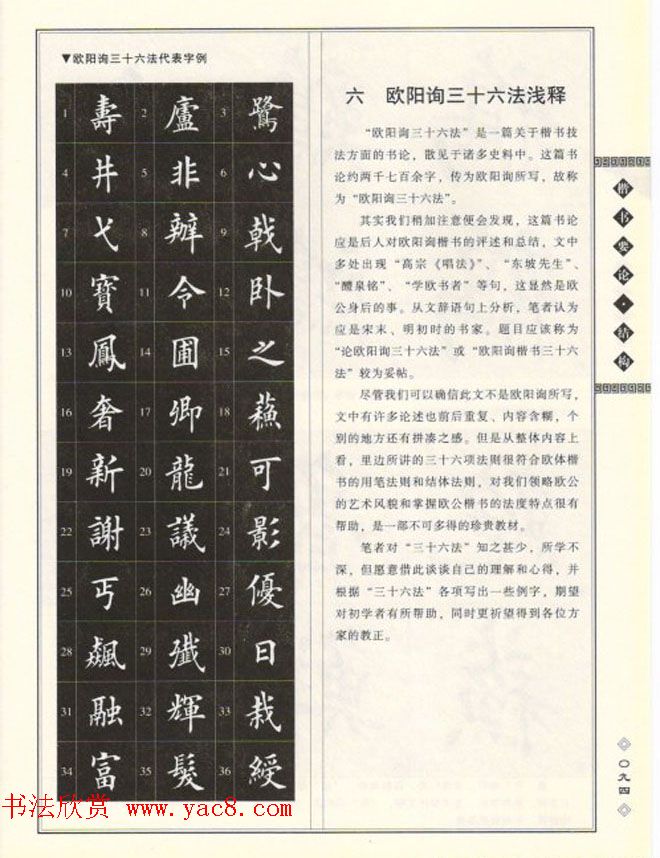 ▼欧阳询三十六法代表字例
1 壽 2 廬 3 鷺
4 井 5 非 6 心
7 弋 8 辦 9 戟
10 寶 11 令 12 卧
13 鳳 14 圃 15 之
16 奢 17 卿 18 蘇
19 新 20 龍 21 可
22 謝 23 議 24 影
25 丐 26 幽 27 優
28 飆 29 殲 30 日
31 融 32 輝 33 栽
34 富 35 髮 36 綬
六 欧阳询三十六法浅释
“欧阳询三十六法”是一篇关于楷书技
法方面的书论，散见于诸多史料中。这篇书
论约两千七百余字，传为欧阳询所写，故称
为“欧阳询三十六法”。
其实我们稍加注意便会发现，这篇书论
应是后人对欧阳询楷书的评述和总结，文中
多处出现“高宗《唱法》”、“东坡先生”、
“醴泉铭”、“学欧书者”等句，这显然是欧
公身后的事。从文辞语句上分析，笔者认为
应是宋末、明初时的书家。题目应该称为
“论欧阳询三十六法”或“欧阳询楷书三十六
法”较为妥帖。
尽管我们可以确信此文不是欧阳询所写，
文中有许多论述也前后重复、内容含糊，个
别的地方还有拼凑之感。但是从整体内容上
看，里边所讲的三十六项法则很符合欧体楷
书的用笔法则和结体法则，对我们领略欧公
的艺术风貌和掌握欧公楷书的法度特点很有
帮助，是一部不可多得的珍贵教材。
笔者对“三十六法”知之甚少，所学不
深，但愿意借此谈谈自己的理解和心得，并
根据“三十六法”各项写出一些例字，期望
对初学者有所帮助，同时更祈望得到各位方
家的教正。
楷书要论·结构
〇九四
书法欣赏 www.yac8.com